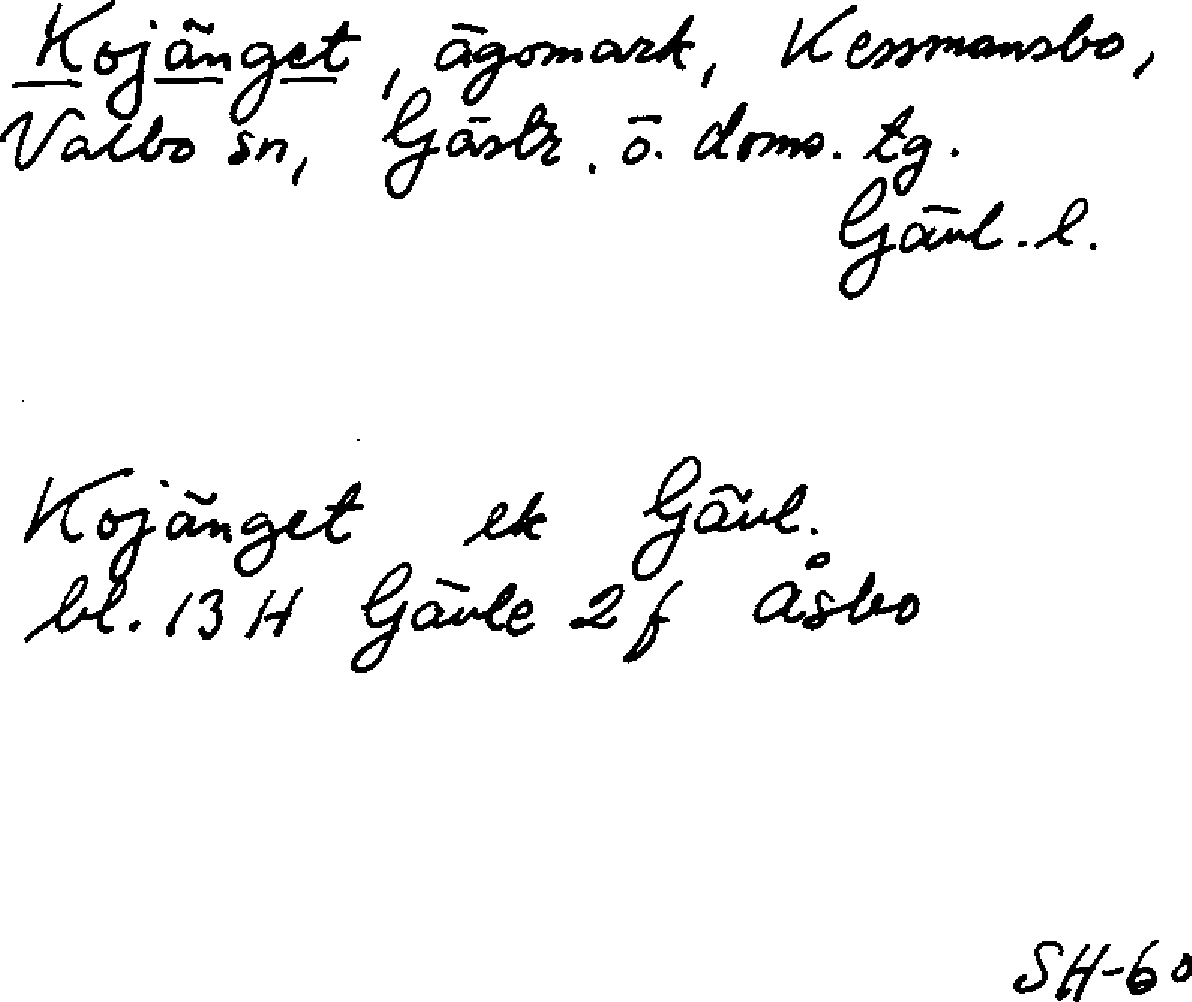 Kojänget, ägomark, Kessmansbo,
Valbo sn, Gästr. ö. doms. tg.
Gävl. l.
Kojänget ek Gävl.
bl. 13 H Gävle 2 f Åsbo
SH-60